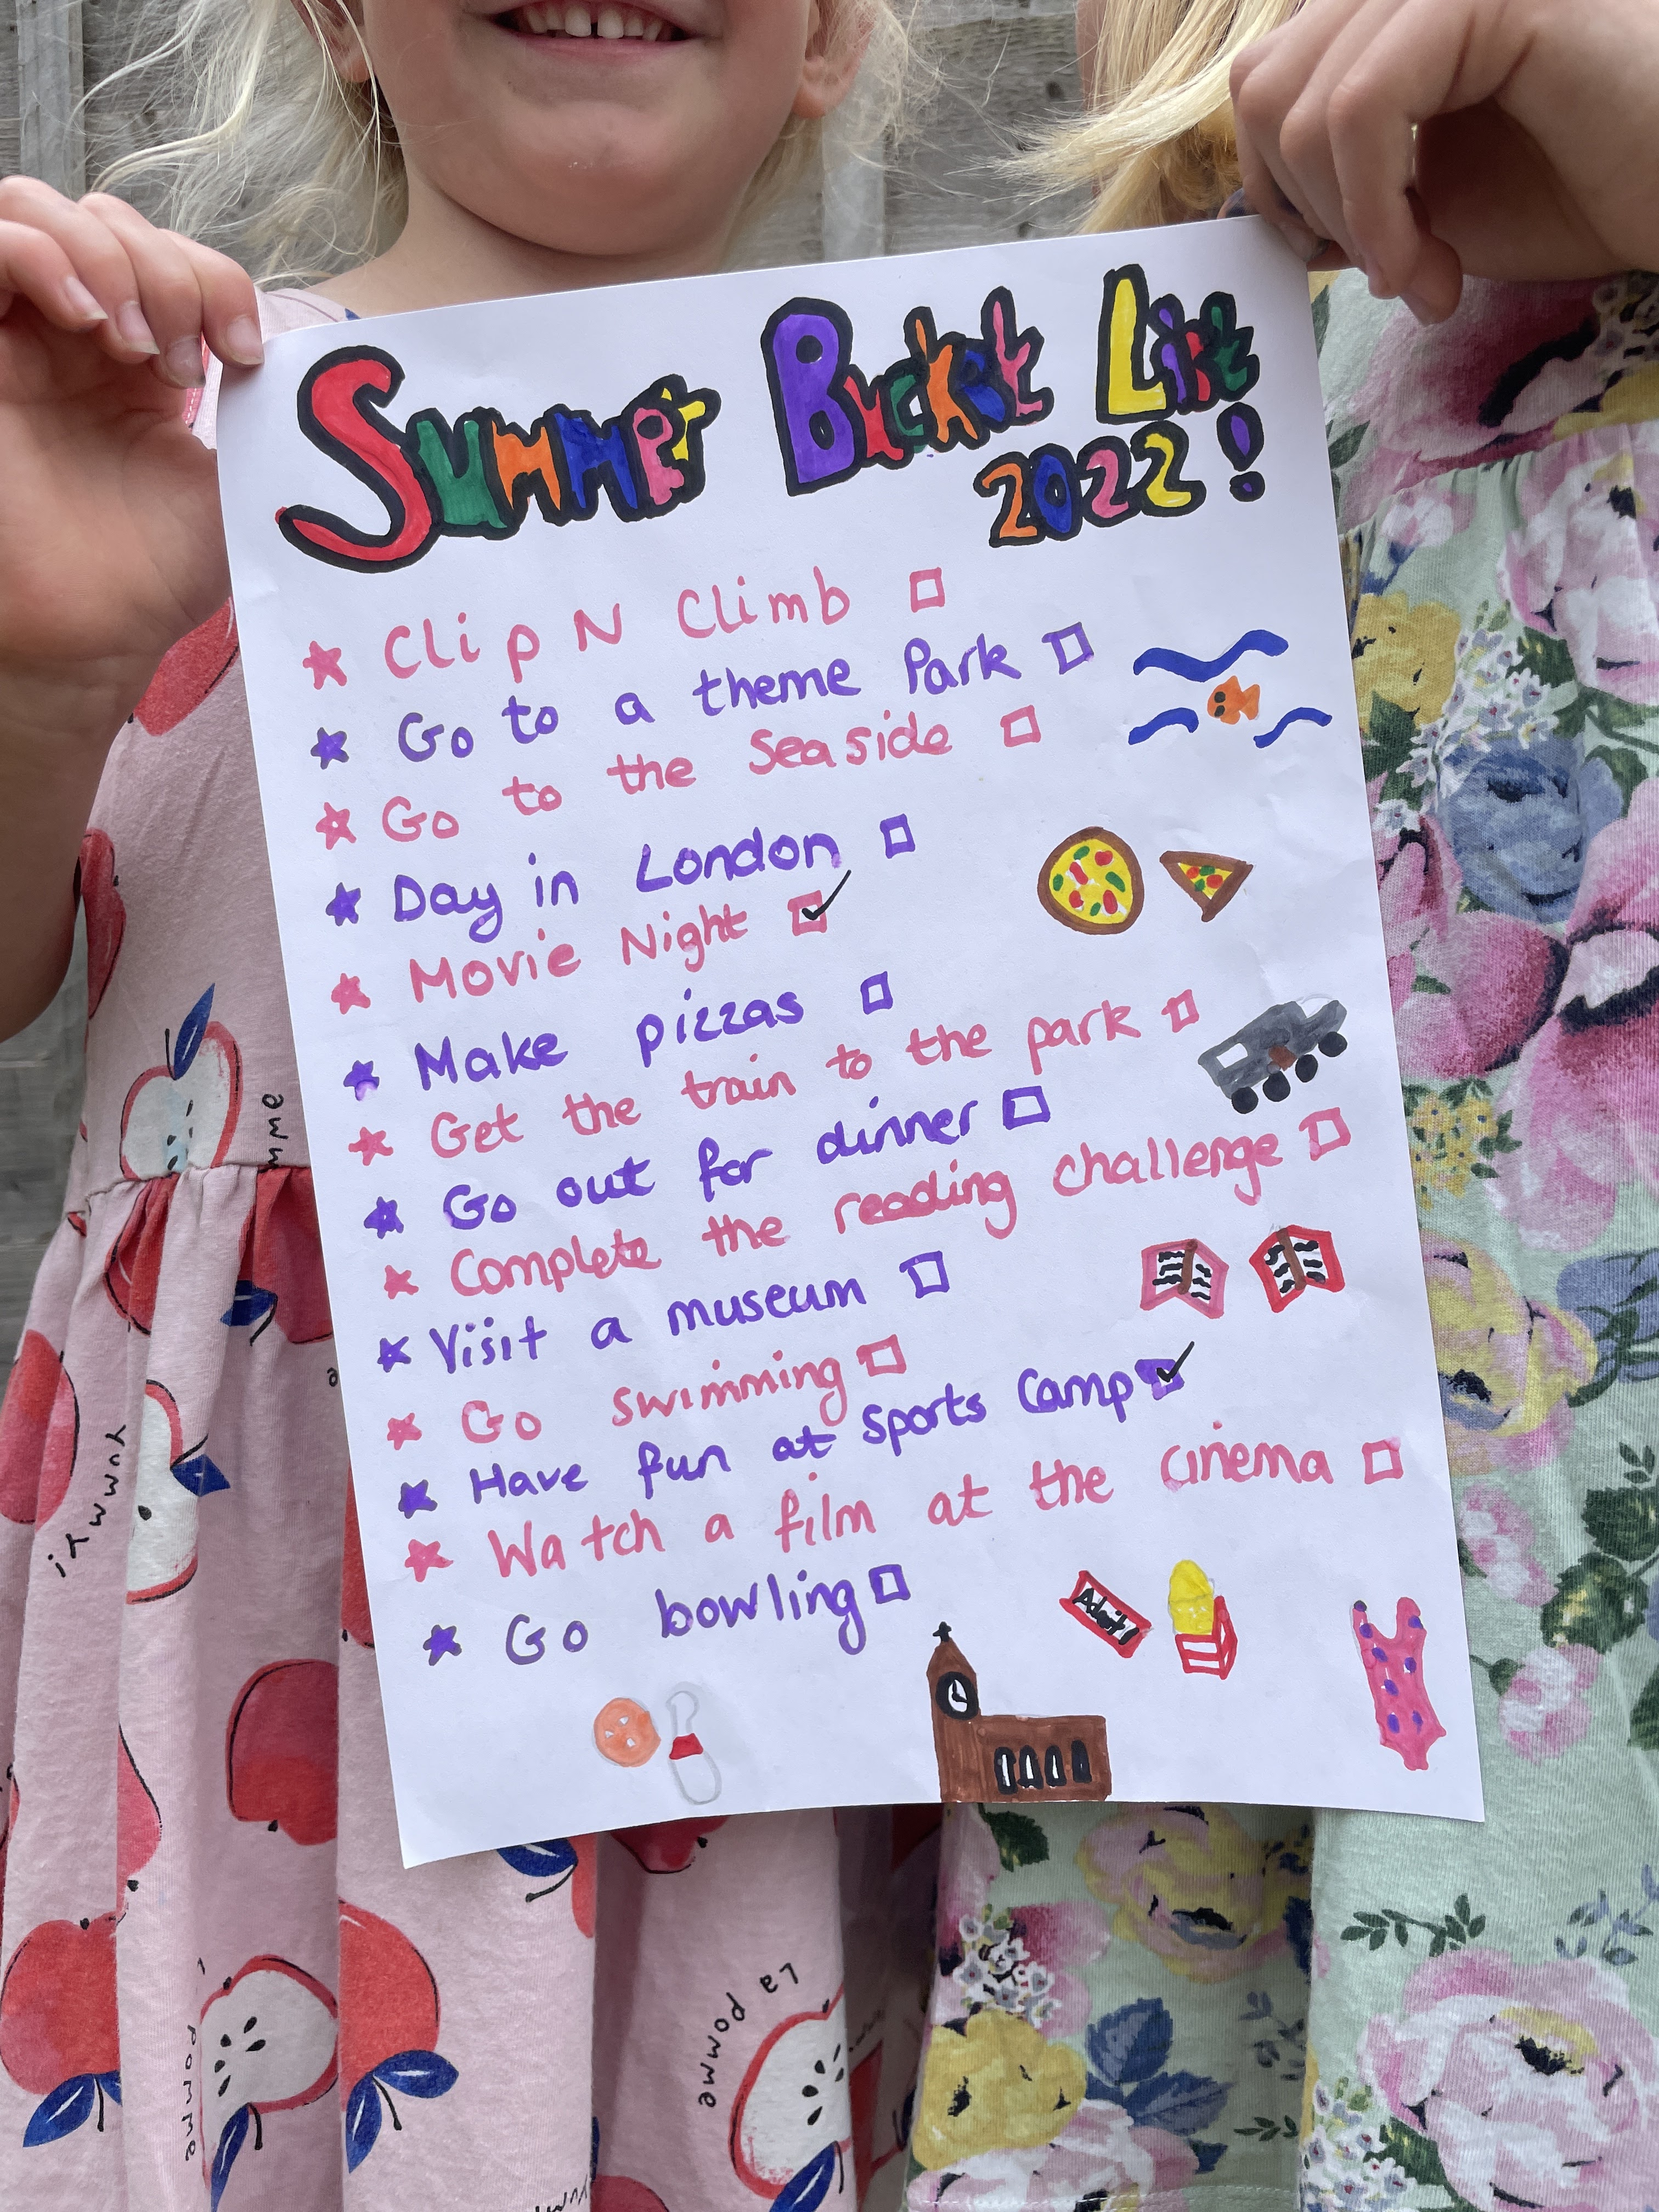 Summer Bucket List
2022!
Clip N Climb
Go to a theme Park
Go to the Seaside
Day in London
Movie Night
Make pizzas
Get the train to the park
Go out for dinner
Complete the reading challenge
Visit a museum
Go swimming
Have fun at sports Camp
Watch a film at the cinema
Go bowling
Admit 1
mme
yummy!
La pomme
pomme